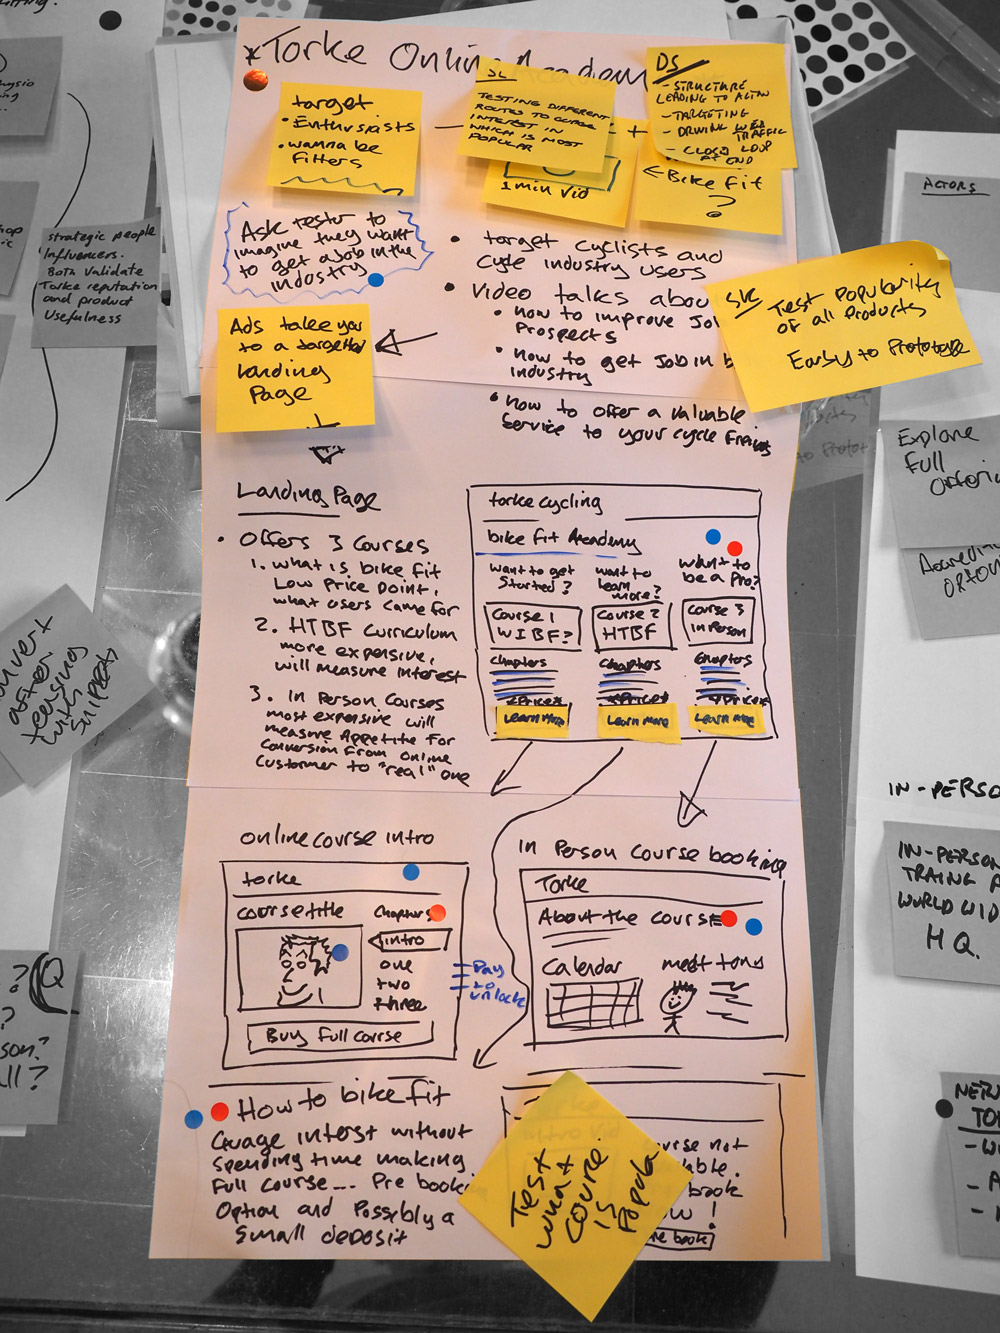 * Torke Online Academy
target
• Enthusiasts
• wanna be
fitters
SL
TESTING DIFFERENT
ROUTES TO GUAGE
INTEREST IN
WHICH IS MOST
POPULAR
1 min vid
+
DS
- STRUCTURE
LEADING TO ACTION
- TARGETING
- DRIVING WEB
TRAFFIC
- CLOSED LOOP
AT END
← Bike Fit
?
Ask tester to
imagine they want
to get a Job in the
industry
• target cyclists and
cycle industry users
• Video talks abou
• how to improve Jo
Prospects
• how to get Job in b
industry
• how to offer a valuable
Service to your cycle friends
SK
Test Popularity
of all Products
Easy to Prototype
Ads take you
to a targetted
Landing
Page
Landing Page
• Offers 3 Courses
1. what is bike fit
Low Price Point,
what users came for
2. HTBF Curriculum
more expensive,
will measure interest
3. In Person Courses
most expensive will
measure Appetite for
Conversion From Online
Customer to "real" one
torke cycling
bike fit Academy
want to get
Started?
want to
learn
more?
want to
be a Pro?
Course 1
WIBF?
Course 2
HTBF
Course 3
In Person
Chapters
Chapters
Chapters
*Price*
*Price*
Learn More
Learn More
Learn More
online course intro
torke
course title
Chapters
intro
one
two
three
Pay
to
unlock
Buy Full course
In Person course booking
Torke
About the course
Calendar
meet tony
How to bike fit
Guage interst without
spending time making
full course... Pre bookin
Option and Possibly a
Small deposit
Test
what
course
is
Popula
ourse not
lable.
book
ow!
re book
strategic people
Influencers.
Both validate
Torke reputation
and product
Usefulness
onvert
after
teasing
with
snippets
ACTORS
Explore
Full
IN-PERSO
IN-PERSON
TRAING A
WORLD WID
H Q.
? Q
?
son?
ll?